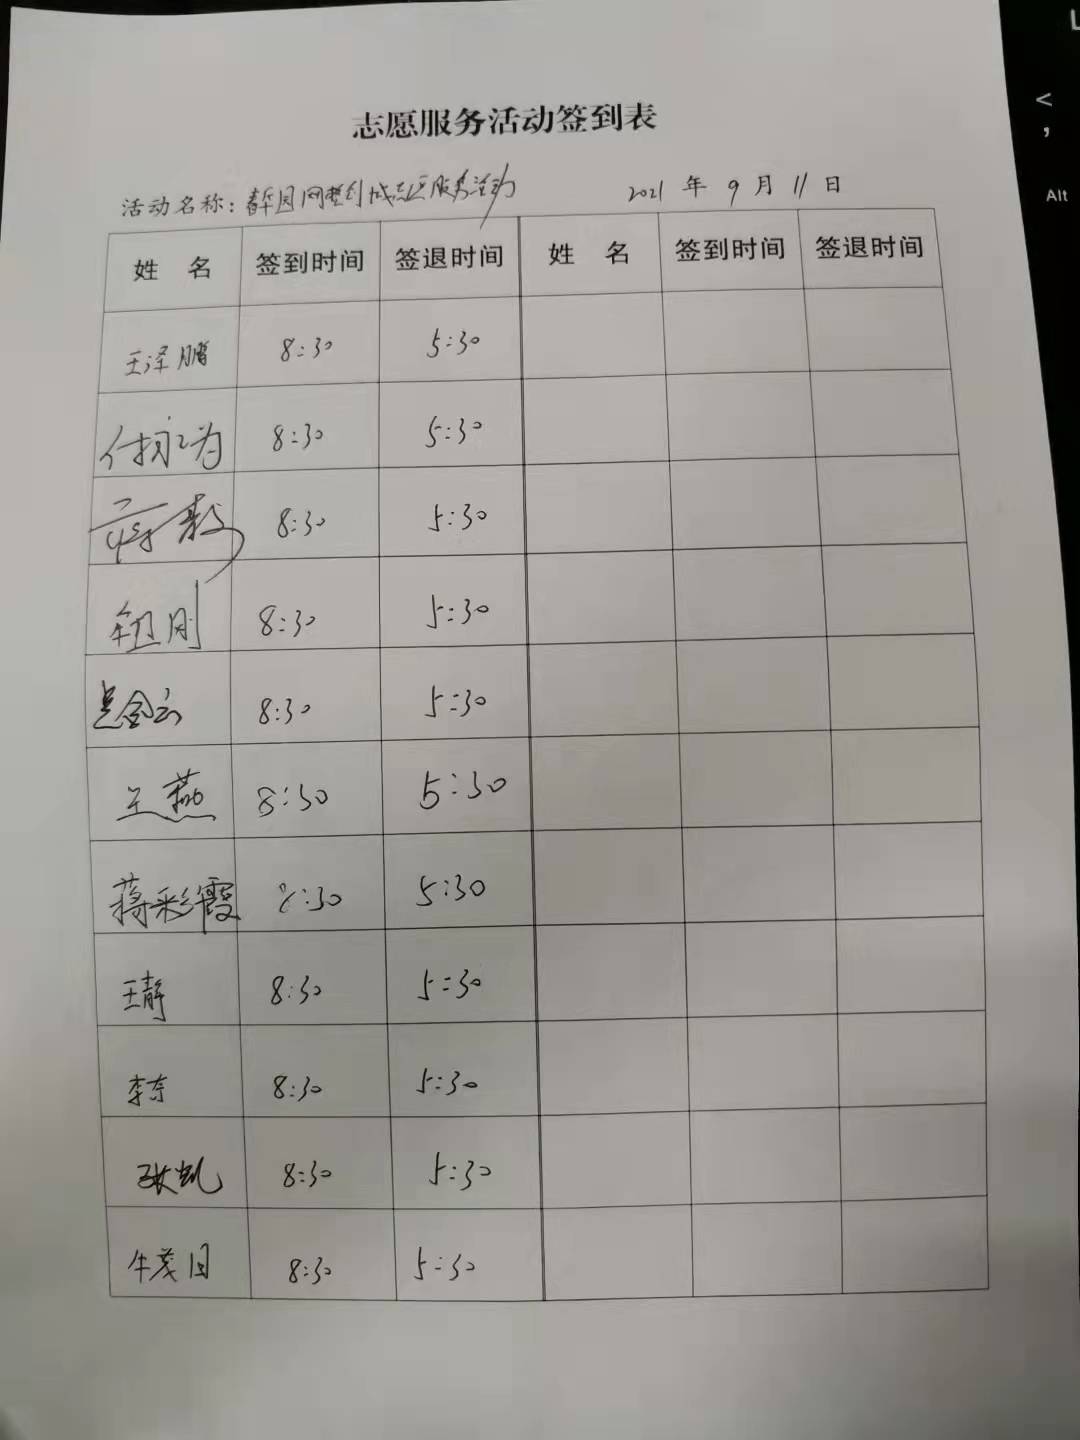 志愿服务活动签到表
活动名称：春华园网 创城志愿服务活动 2021 年 9 月 11 日
姓 名 签到时间 签退时间 姓 名 签到时间 签退时间
王泽鹏 8:30 5:30
8:30 5:30
蒋 8:30 5:30
刚 8:30 5:30
8:30 5:30
王燕 8:30 5:30
蒋彩霞 8:30 5:30
王静 8:30 5:30
李 8:30 5:30
张凯 8:30 5:30
牛茂 8:30 5:30
L
<
,
Alt